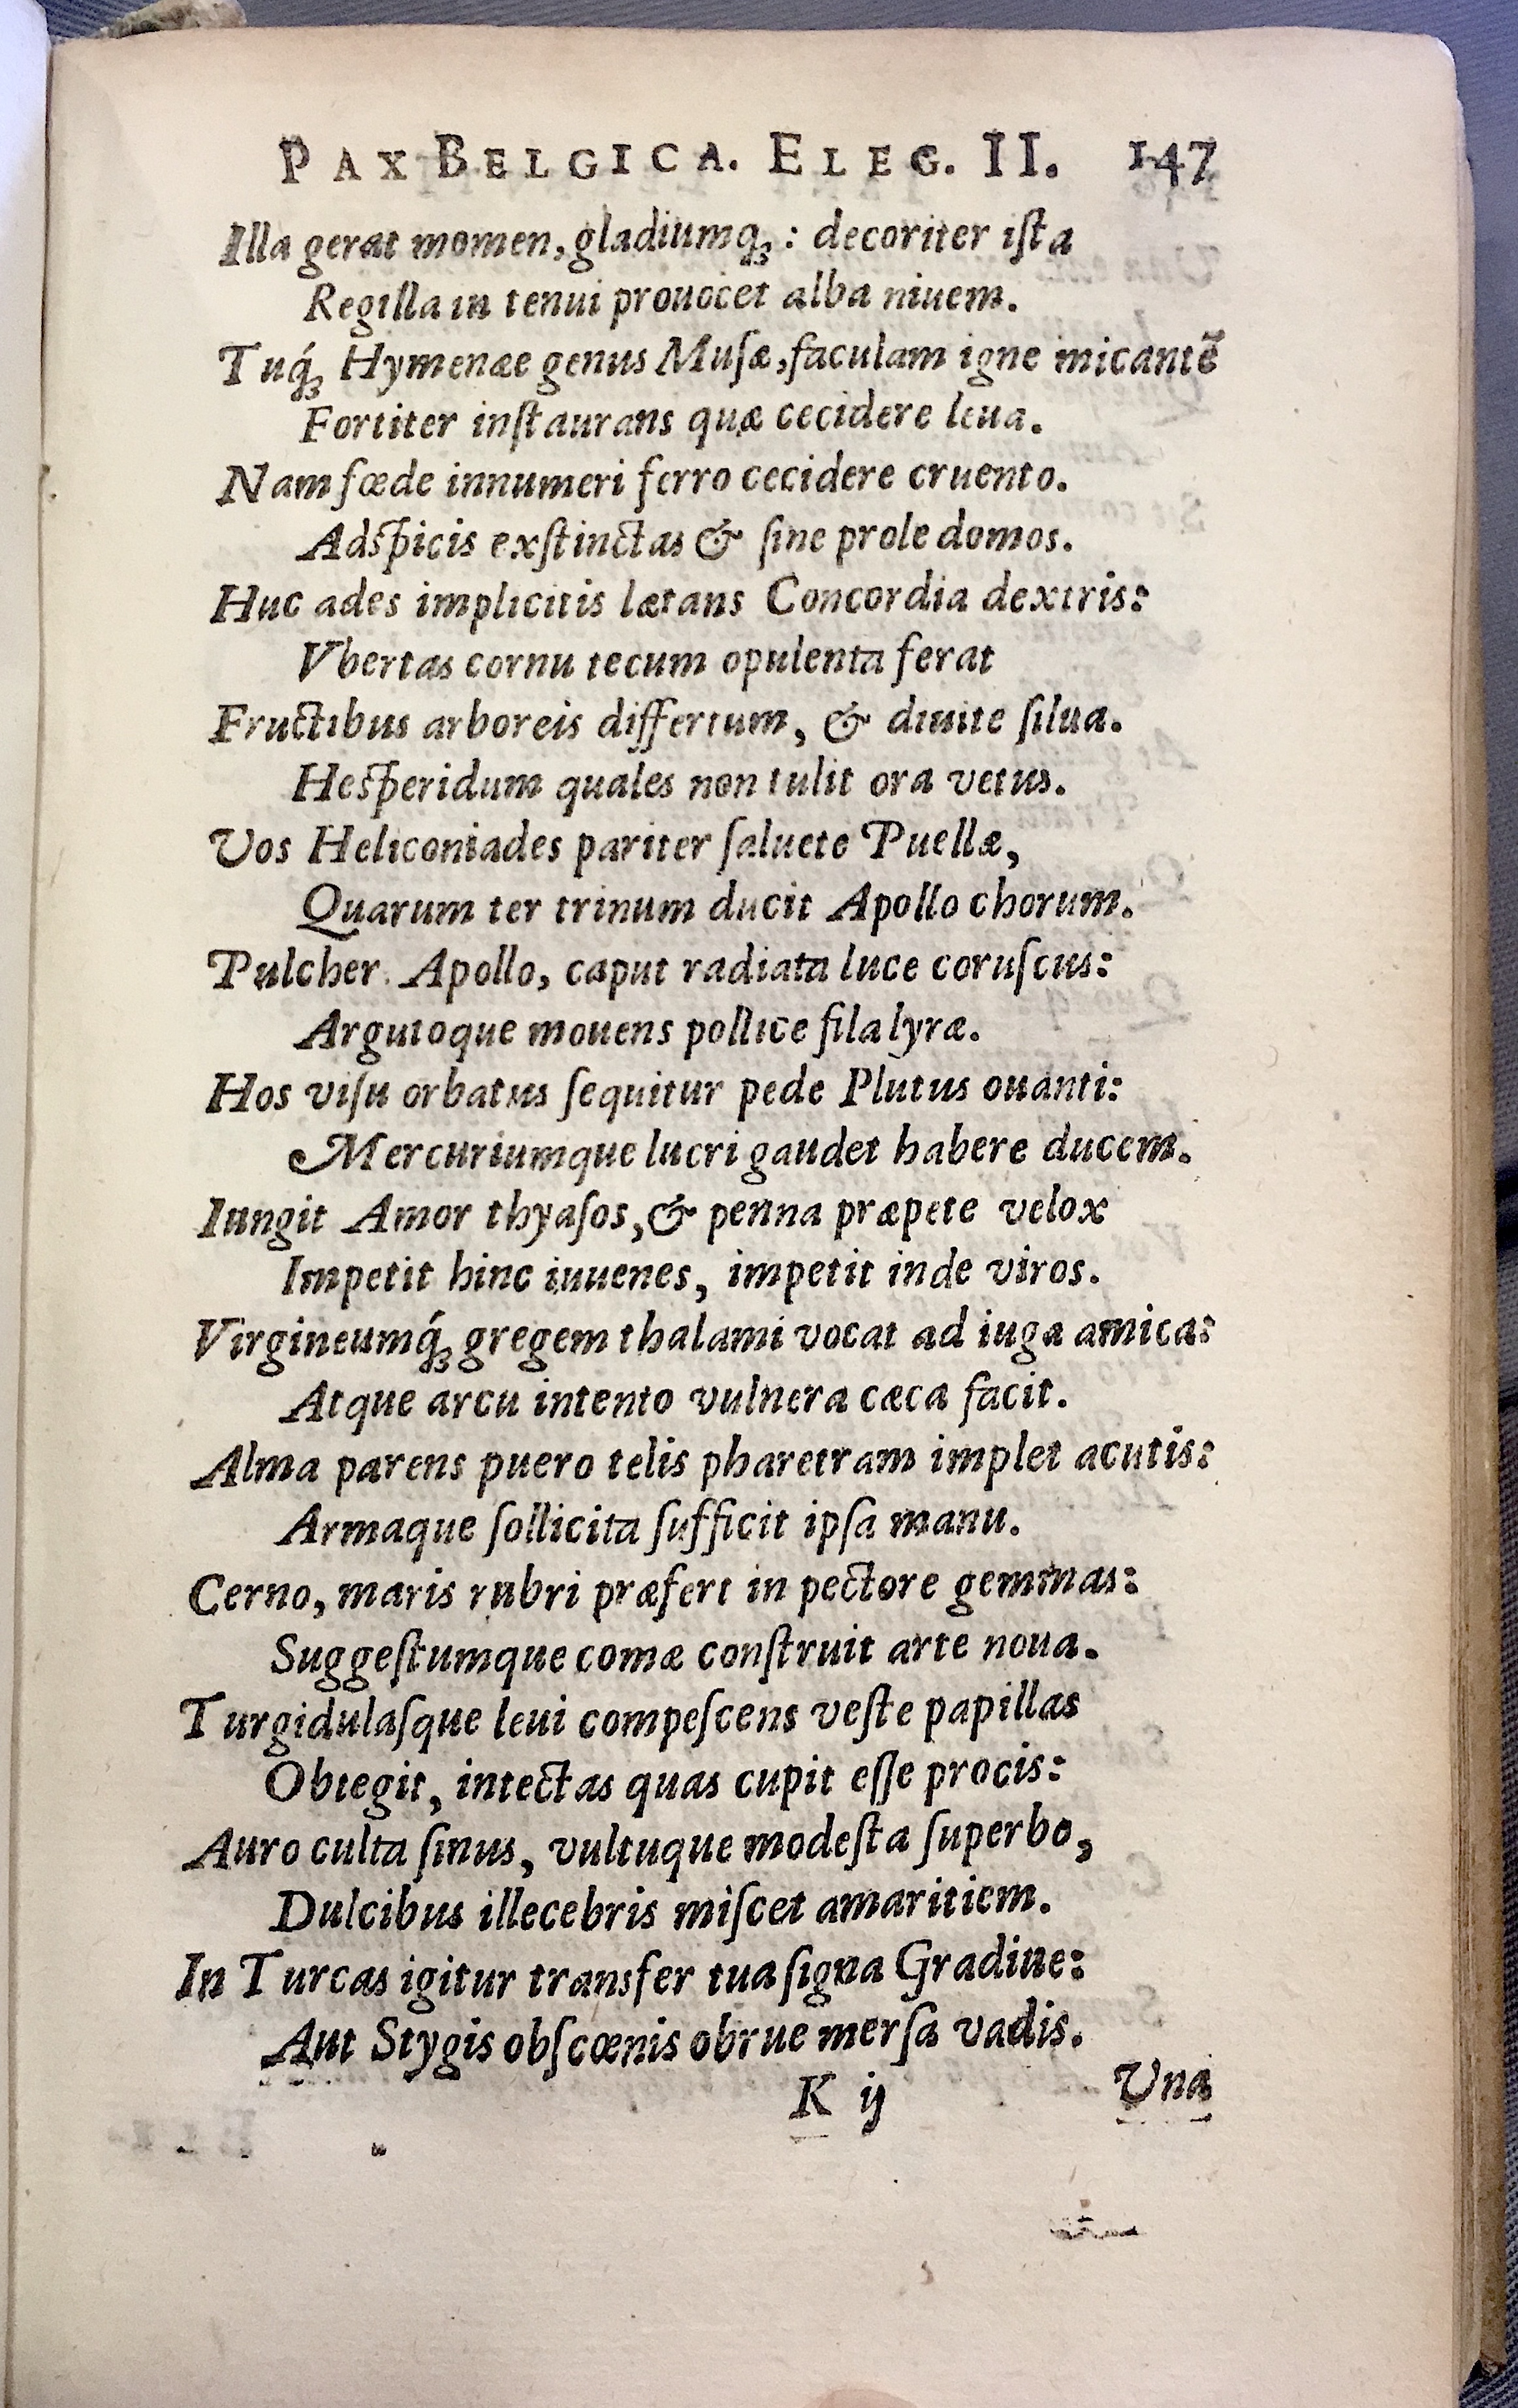 PAX BELGICA. ELEG. II. 147
Illa gerat momen, gladiumq́ꝫ: decoriter iſta
Regilla in tenui prouocet alba niuem.
Tuq́ꝫ Hymenæe genus Muſæ, faculam igne micantē
Fortiter inſtaurans quæ cecidere leua.
Nam fœde innumeri ferro cecidere cruento.
Adſpicis exſtinctas & ſine prole domos.
Huc ades implicitis lætans Concordia dextris:
Vbertas cornu tecum opulenta ferat
Fructibus arboreis differtum, & diuite ſilua.
Heſperidum quales non tulit ora vetus.
Vos Heliconiades pariter ſaluete Puellæ,
Quarum ter trinum ducit Apollo chorum.
Pulcher Apollo, caput radiata luce coruſcus:
Argutoque mouens pollice fila lyræ.
Hos viſu orbatus ſequitur pede Plutus ouanti:
Mercuriumque lucri gaudet habere ducem.
Iungit Amor thyaſos, & penna præpete velox
Impetit hinc iuuenes, impetit inde viros.
Virgineumq́ꝫ gregem thalami vocat ad iuga amica:
Atque arcu intento vulnera cæca facit.
Alma parens puero telis pharetram implet acutis:
Armaque ſollicita ſufficit ipſa manu.
Cerno, maris rubri præfert in pectore gemmas:
Suggeſtumque comæ conſtruit arte noua.
Turgidulaſque leui compeſcens veſte papillas
Obtegit, intectas quas cupit eſſe procis:
Auro culta ſinus, vultuque modeſta ſuperbo,
Dulcibus illecebris miſcet amaritiem.
In Turcas igitur transfer tua ſigna Gradiue:
Aut Stygis obſcœnis obrue merſa vadis.
K ij Una